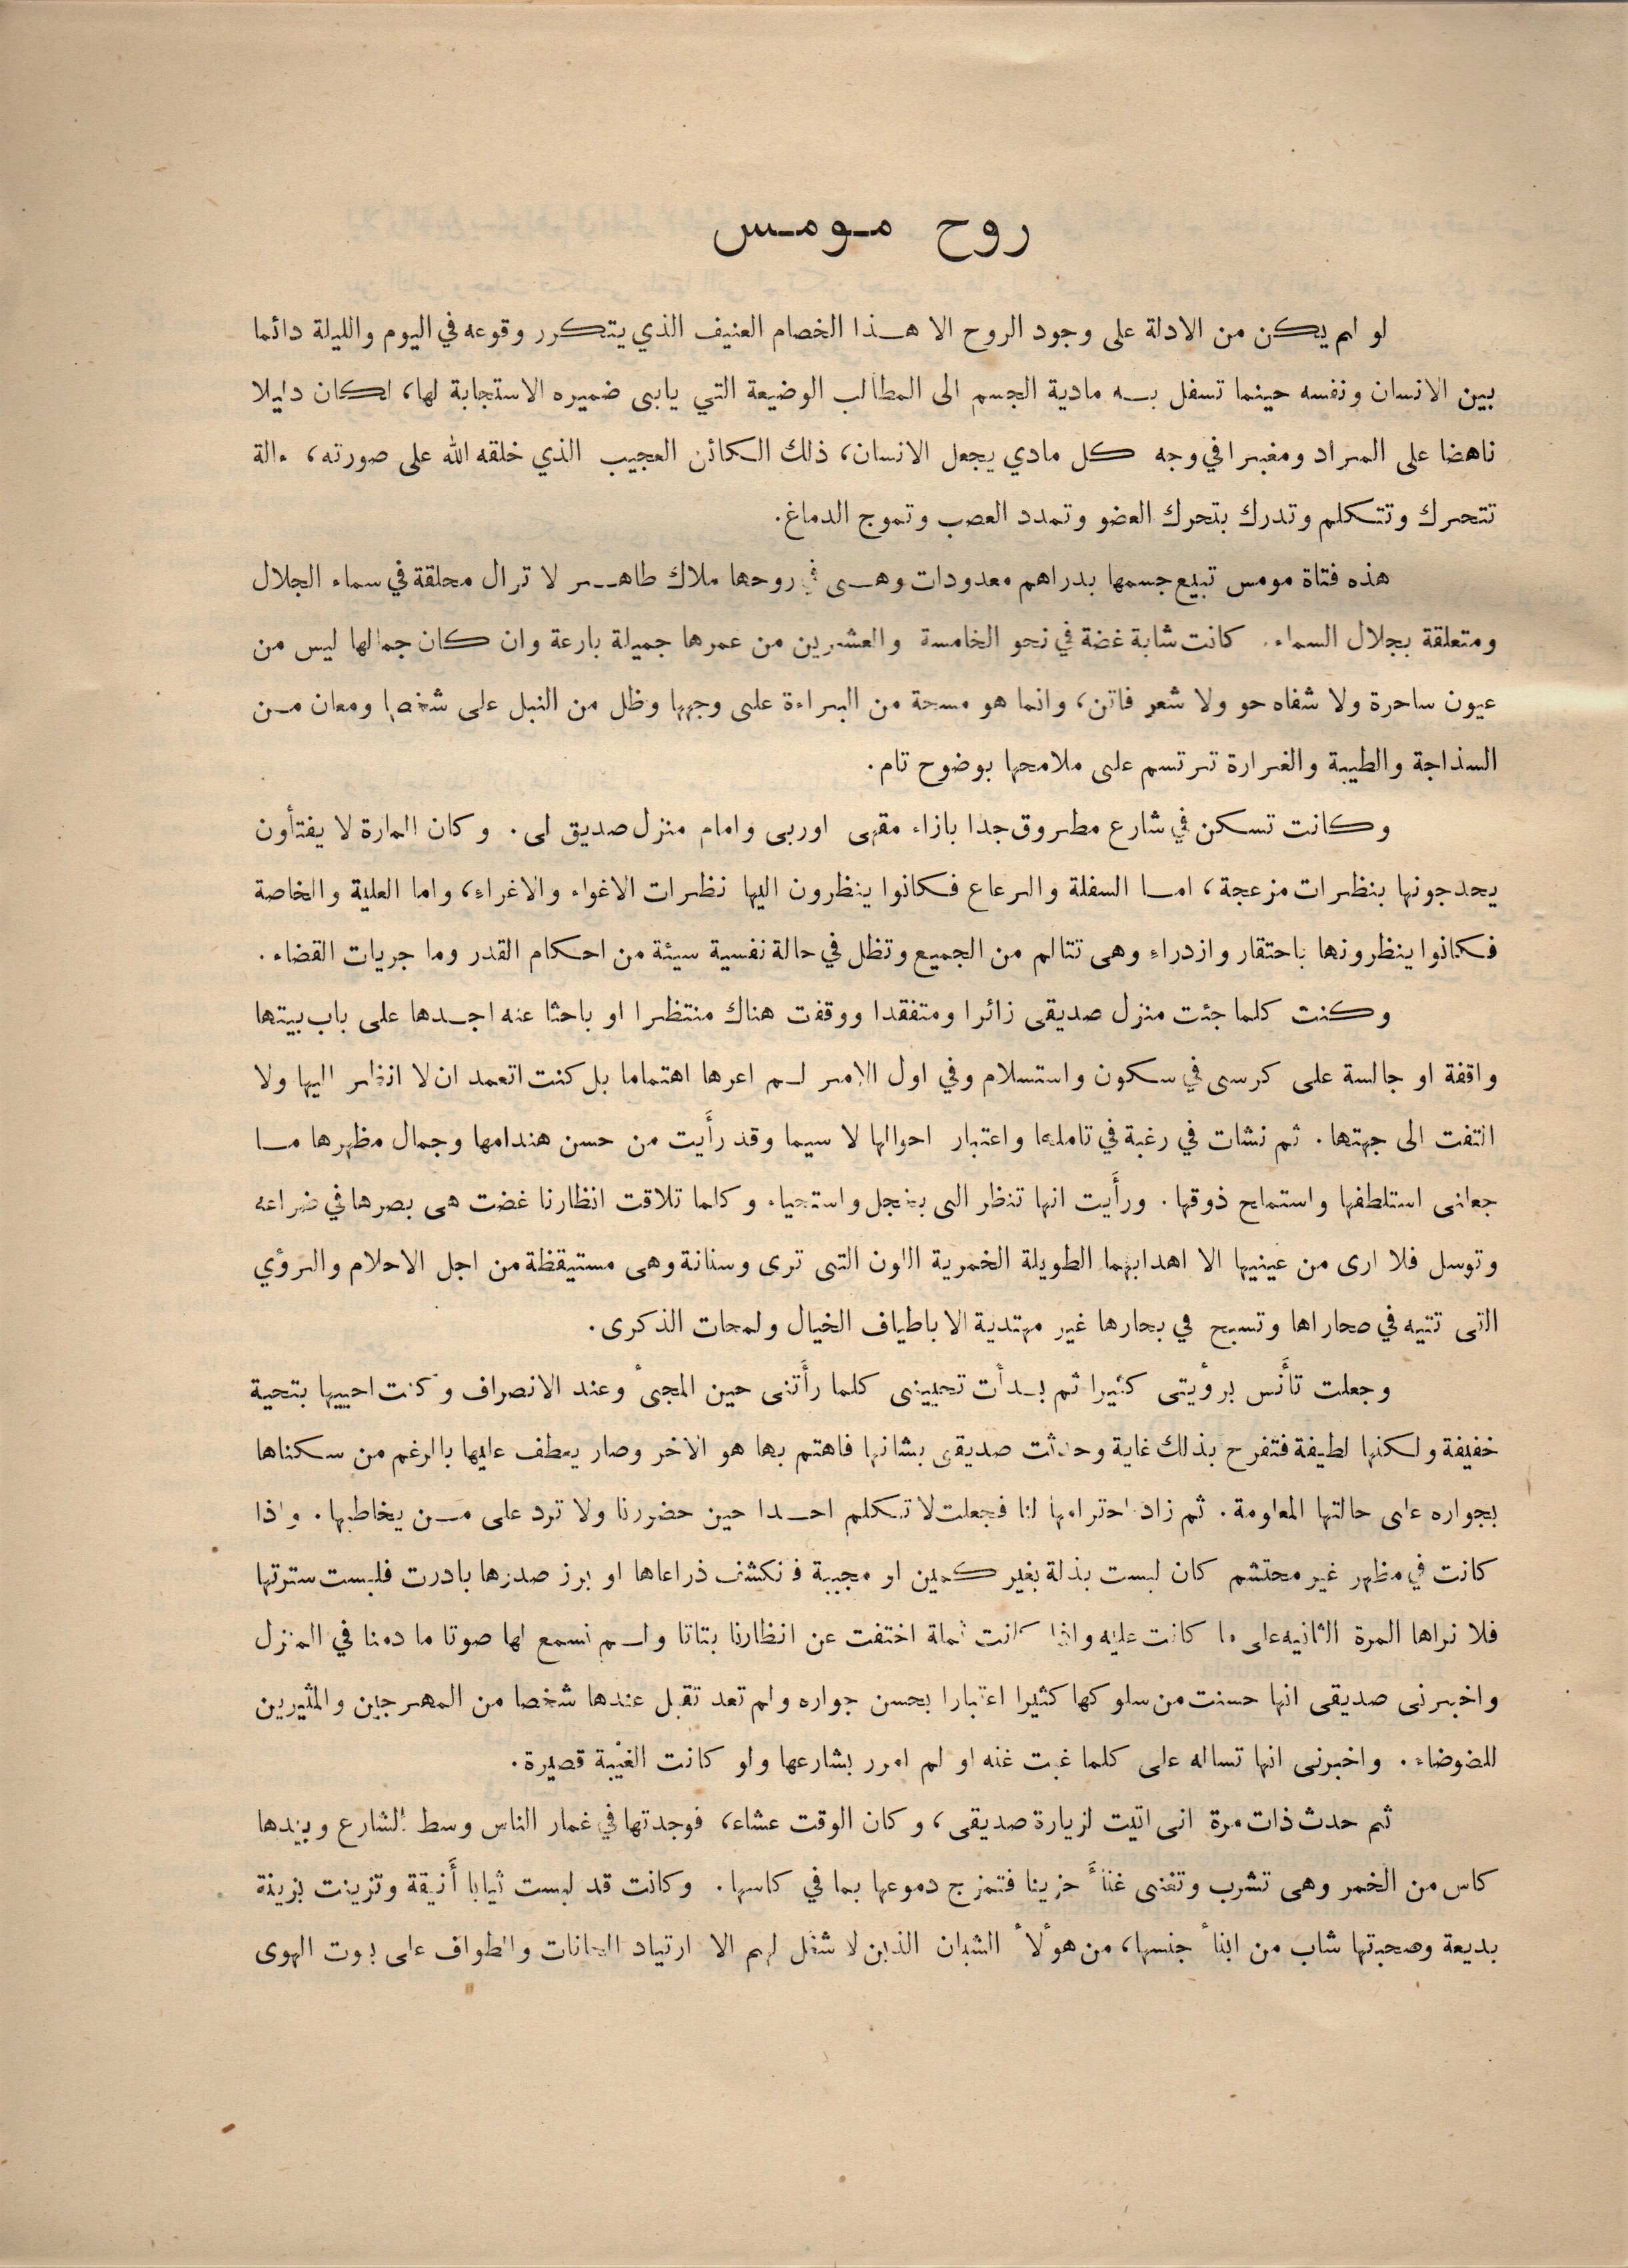 روح مومس
لو لم يكن من الادلة على وجود الروح الا هذا الخصام العنيف الذي يتكرر وقوعه في اليوم والليلة دائما
بين الانسان ونفسه حينما تسفل به مادية الجسم الى المطالب الوضيعة التي يابى ضميره الاستجابة لها، لكان دليلا
ناهضا على المراد ومغبرا في وجه كل مادي يجعل الانسان، ذلك الكائن العجيب الذي خلقه الله على صورته، ءالة
تتحرك وتتكلم وتدرك بتحرك العضو وتمدد العصب وتموج الدماغ.
هذه فتاة مومس تبيع جسمها بدراهم معدودات وهى في روحها ملاك طاهر لا تزال محلقة في سماء الجلال
ومتعلقة بجلال السماء. كانت شابة غضة في نحو الخامسة والعشرين من عمرها جميلة بارعة وان كان جمالها ليس من
عيون ساحرة ولا شفاه حو ولا شعر فاتن، وانما هو مسحة من البراءة على وجهها وظل من النبل على شخصها ومعان من
السذاجة والطيبة والغرارة ترتسم على ملامحها بوضوح تام.
وكانت تسكن في شارع مطروق جدا بازاء مقهى اوربى وامام منزل صديق لى. وكان المارة لا يفتأون
يحدجونها بنظرات مزعجة، اما السفلة والرعاع فكانوا ينظرون اليها نظرات الاغواء والاغراء، واما العلية والخاصة
فكانوا ينظرونها باحتقار وازدراء وهى تتالم من الجميع وتظل في حالة نفسية سيئة من احكام القدر وما جريات القضاء.
وكنت كلما جئت منزل صديقى زائرا ومتفقدا ووقفت هناك منتظرا او باحثا عنه اجدها على باب بيتها
واقفة او جالسة على كرسى في سكون واستسلام وفي اول الامر لم اعرها اهتماما بل كنت اتعمد ان لا انظر اليها ولا
التفت الى جهتها. ثم نشات في رغبة في تاملها واعتبار احوالها لا سيما وقد رأَيت من حسن هندامها وجمال مظهرها ما
جعلنى استلطفها واستملح ذوقها. ورأَيت انها تنظر الى بخجل واستحياء وكلما تلاقت انظارنا غضت هى بصرها في ضراعه
وتوسل فلا ارى من عينيها الا اهدابهما الطويلة الخمرية اللون التى ترى وسنانة وهى مستيقظة من اجل الاحلام والرؤي
التى تتيه في صحاراها وتسبح في بحارها غير مهتدية الا باطياف الخيال ولمحات الذكرى.
وجعلت تأنَس برؤيتى كثيرا ثم بدأت تحيينى كلما رأَتنى حين المجىْ وعند الانصراف وكنت احييها بتحية
خفيفة ولكنها لطيفة فتفرح بذلك غاية وحدثت صديقى بشانها فاهتم بها هو الاخر وصار يعطف عليها بالرغم من سكناها
بجواره على حالتها المعلومة. ثم زاد احترامها لنا فجعلت لا تكلم احدا حين حضورنا ولا ترد على من يخاطبها. واذا
كانت في مظهر غير محتشم كان لبست بذلة بغير كمين او مجببة فانكشف ذراعاها او برز صدرها بادرت فلبست سترتها
فلا نراها المرة الثانيه على ما كانت عليه واذا كانت ثملة اختفت عن انظارنا بتاتا ولم نسمع لها صوتا ما دمنا في المنزل
واخبرنى صديقى انها حسنت من سلوكها كثيرا اعتبارا بحسن جواره ولم تعد تقبل عندها شخصا من المهرجين والمثيرين
للضوضاء. واخبرنى انها تساله على كلما غبت عنه او لم امرر بشارعها ولو كانت الغيْبة قصيرة.
ثم حدث ذات مرة انى اتيت لزيارة صديقى، وكان الوقت عشاء، فوجدتها في غمار الناس وسط الشارع وبيدها
كاس من الخمر وهى تشرب وتغنى غنأَ حزينا فتمزج دموعها بما في كاسها. وكانت قد لبست ثيابا أَنيقة وتزينت بزينة
بديعة وصحبتها شاب من ابنأ جنسها، من هوْلأ الشبان الذين لا شغل لهم الا ارتياد الحانات والطواف على بيوت الهوى